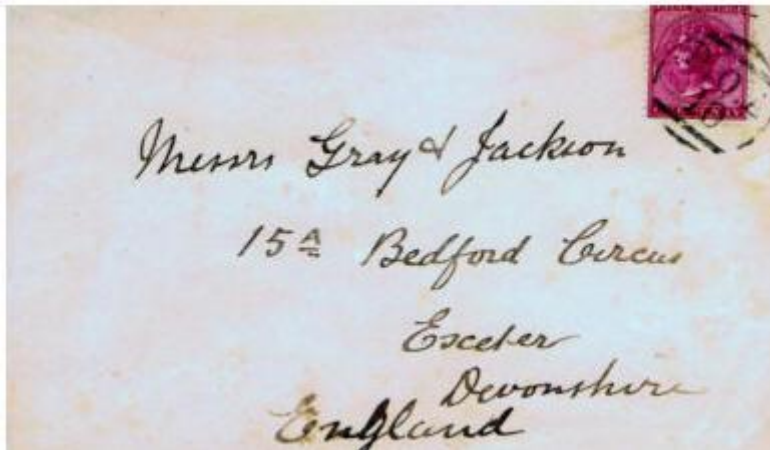 Messrs Gray & Jackson
15A Bedford Circus
Exeter
Devonshire
England